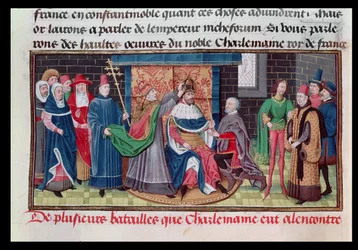 france en constantinoble quant ces choses aduindrent
or lairons a parler de lempereur nicheforum Si vous parle
rons des haultes oeuures du noble Charlemaine roy de france
De plusieurs batailles que Charlemaine eut alencontre